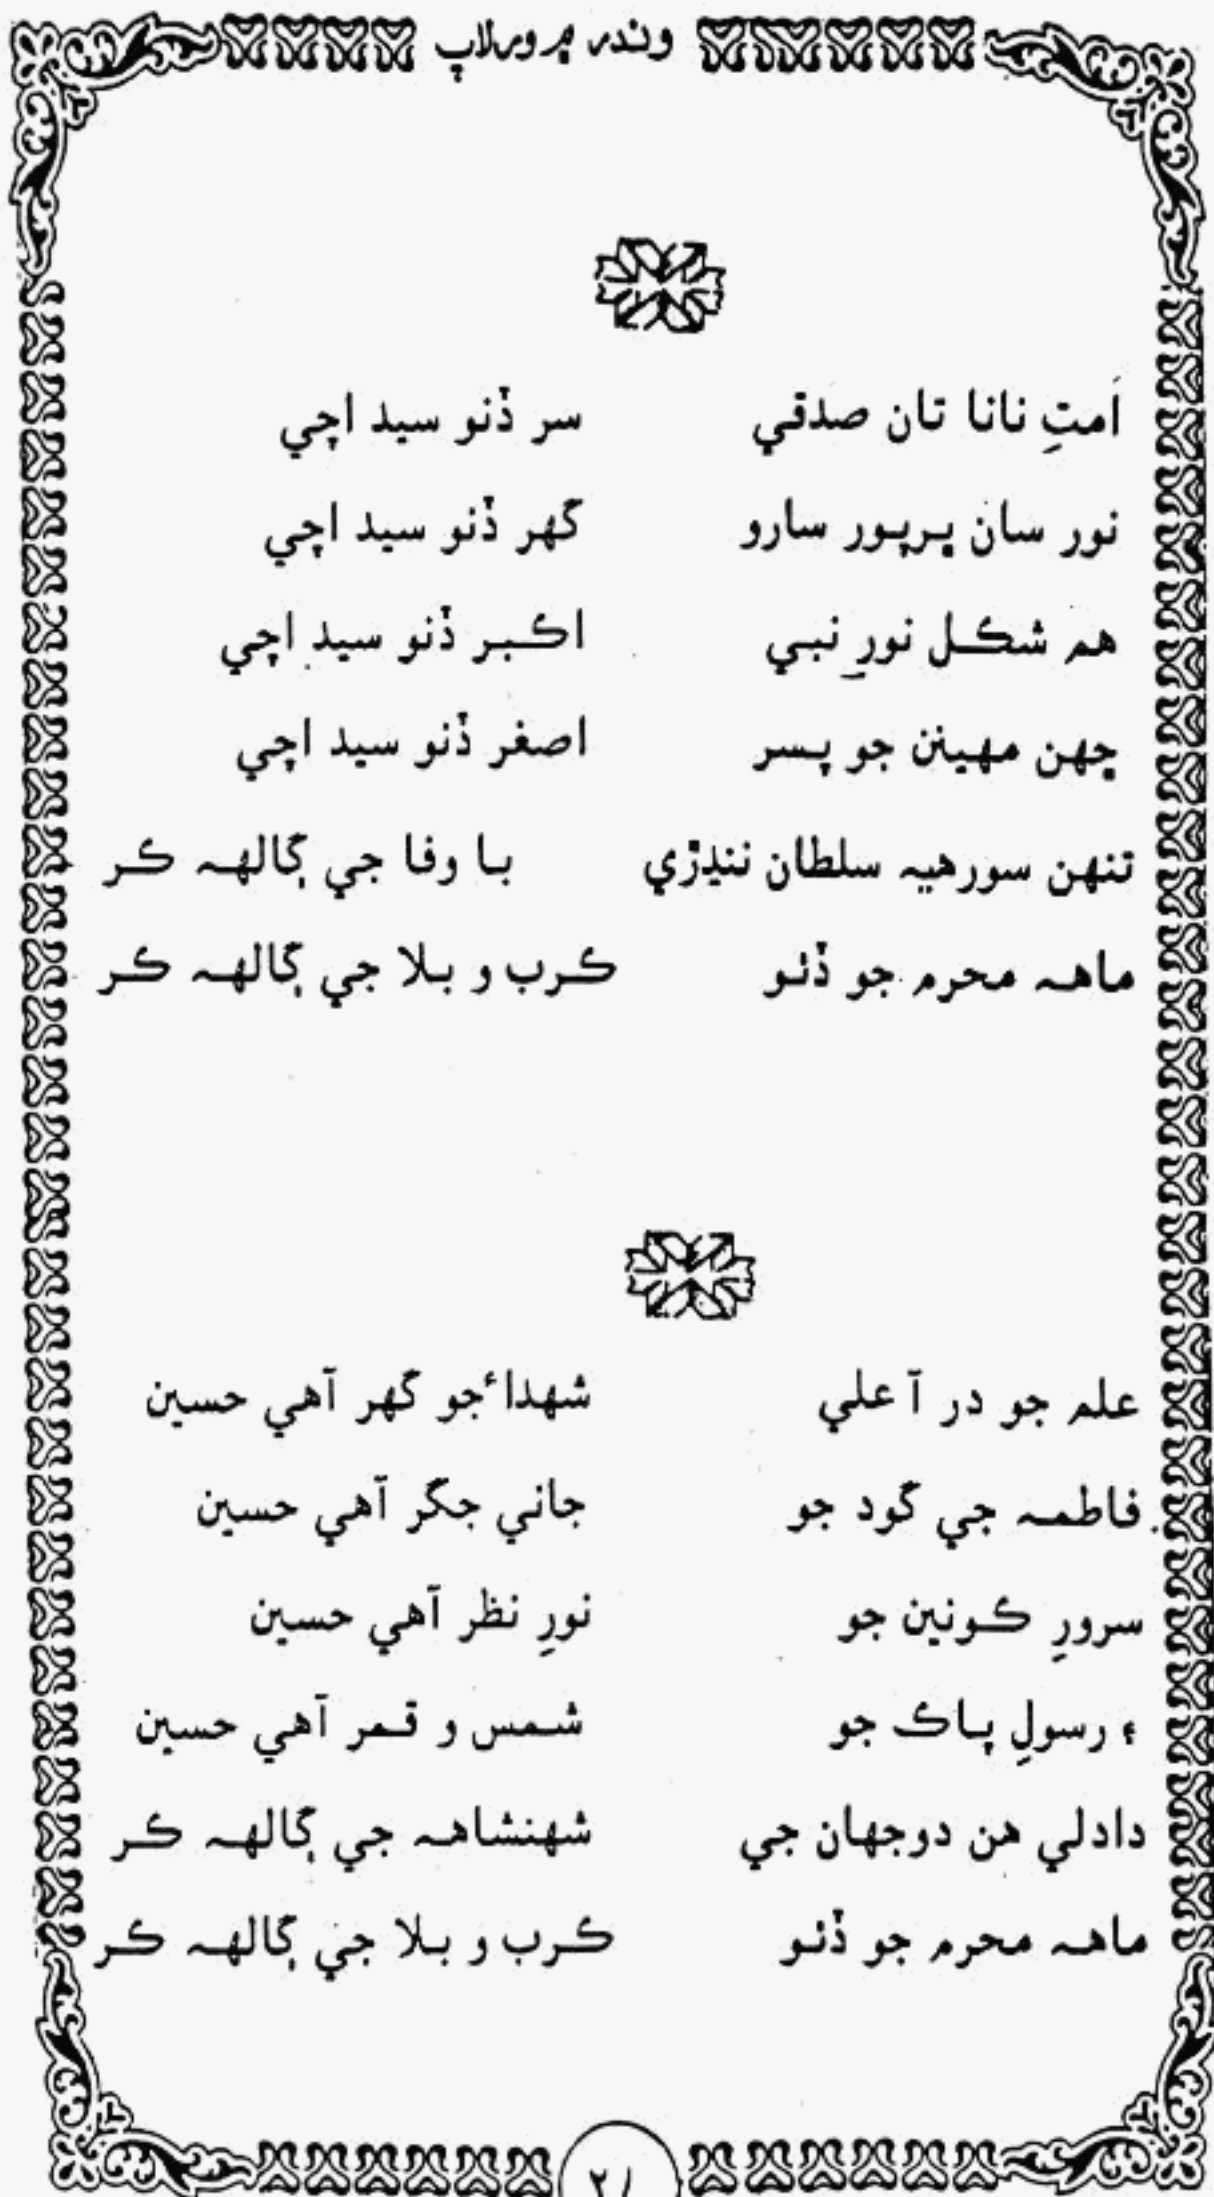 وندر ۾ ورلاپ
اَمتِ نانا تان صدقي سر ڏنو سيد اچي
نور سان ڀرپور سارو گهر ڏنو سيد اچي
هم شڪل نورِ نبي اڪبر ڏنو سيد اچي
ڇهن مهينن جو پسر اصغر ڏنو سيد اچي
تنهن سورهيہ سلطان ننڍڙي با وفا جي ڳالهہ ڪر
ماهہ محرم جو ڏٺو ڪرب و بلا جي ڳالهہ ڪر
علم جو در آ علي شهداءَ جو گهر آهي حسين
فاطمہ جي گود جو جاني جگر آهي حسين
سرورِ ڪونين جو نورِ نظر آهي حسين
۽ رسولِ پاڪ جو شمس و قمر آهي حسين
دادلي هن دوجهان جي شهنشاهہ جي ڳالهہ ڪر
ماهہ محرم جو ڏٺو ڪرب و بلا جي ڳالهہ ڪر
٢١